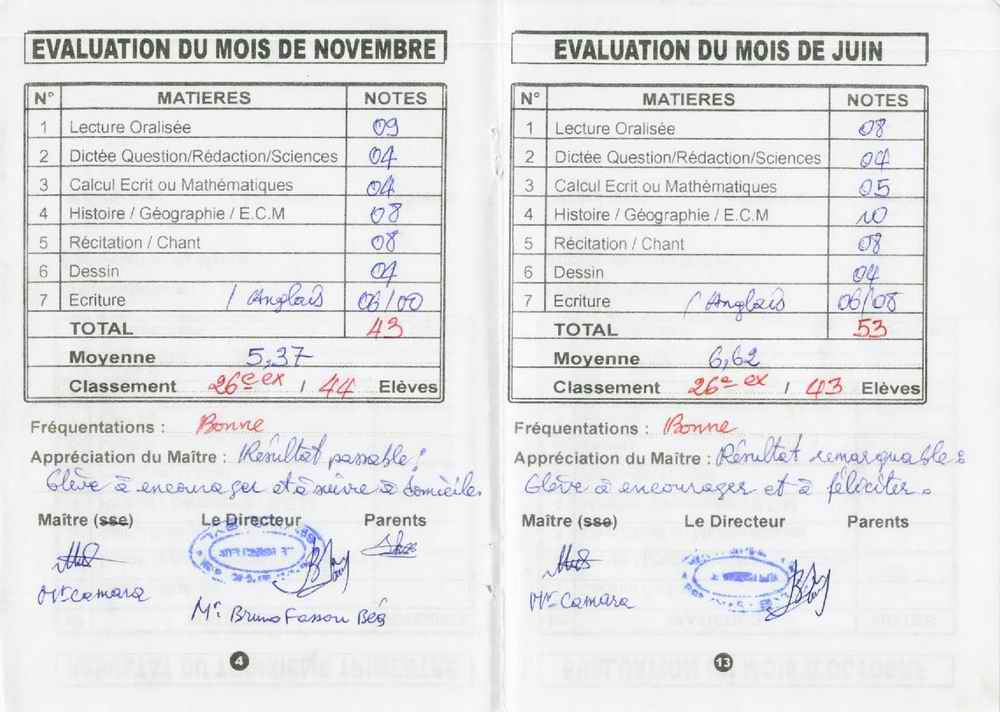 EVALUATION DU MOIS DE NOVEMBRE
N° MATIERES NOTES
1 Lecture Oralisée 09
2 Dictée Question/Rédaction/Sciences 04
3 Calcul Ecrit ou Mathématiques 04
4 Histoire / Géographie / E.C.M 08
5 Récitation / Chant 08
6 Dessin 04
7 Ecriture / Anglais 06/00
TOTAL 43
Moyenne 5,37
Classement 26e ex / 44 Elèves
Fréquentations : Bonne
Appréciation du Maître : Résultat passable !
Elève à encourager et à suivre à domicile.
Maître (sse) Le Directeur Parents
Mr Camara
Mr Bruno Fassou Béa
4
EVALUATION DU MOIS DE JUIN
N° MATIERES NOTES
1 Lecture Oralisée 08
2 Dictée Question/Rédaction/Sciences 04
3 Calcul Ecrit ou Mathématiques 05
4 Histoire / Géographie / E.C.M 10
5 Récitation / Chant 08
6 Dessin 04
7 Ecriture / Anglais 06/08
TOTAL 53
Moyenne 6,62
Classement 26e ex / 43 Elèves
Fréquentations : Bonne
Appréciation du Maître : Résultat remarquable :
Elève à encourager et à féliciter.
Maître (sse) Le Directeur Parents
Mr Camara
13